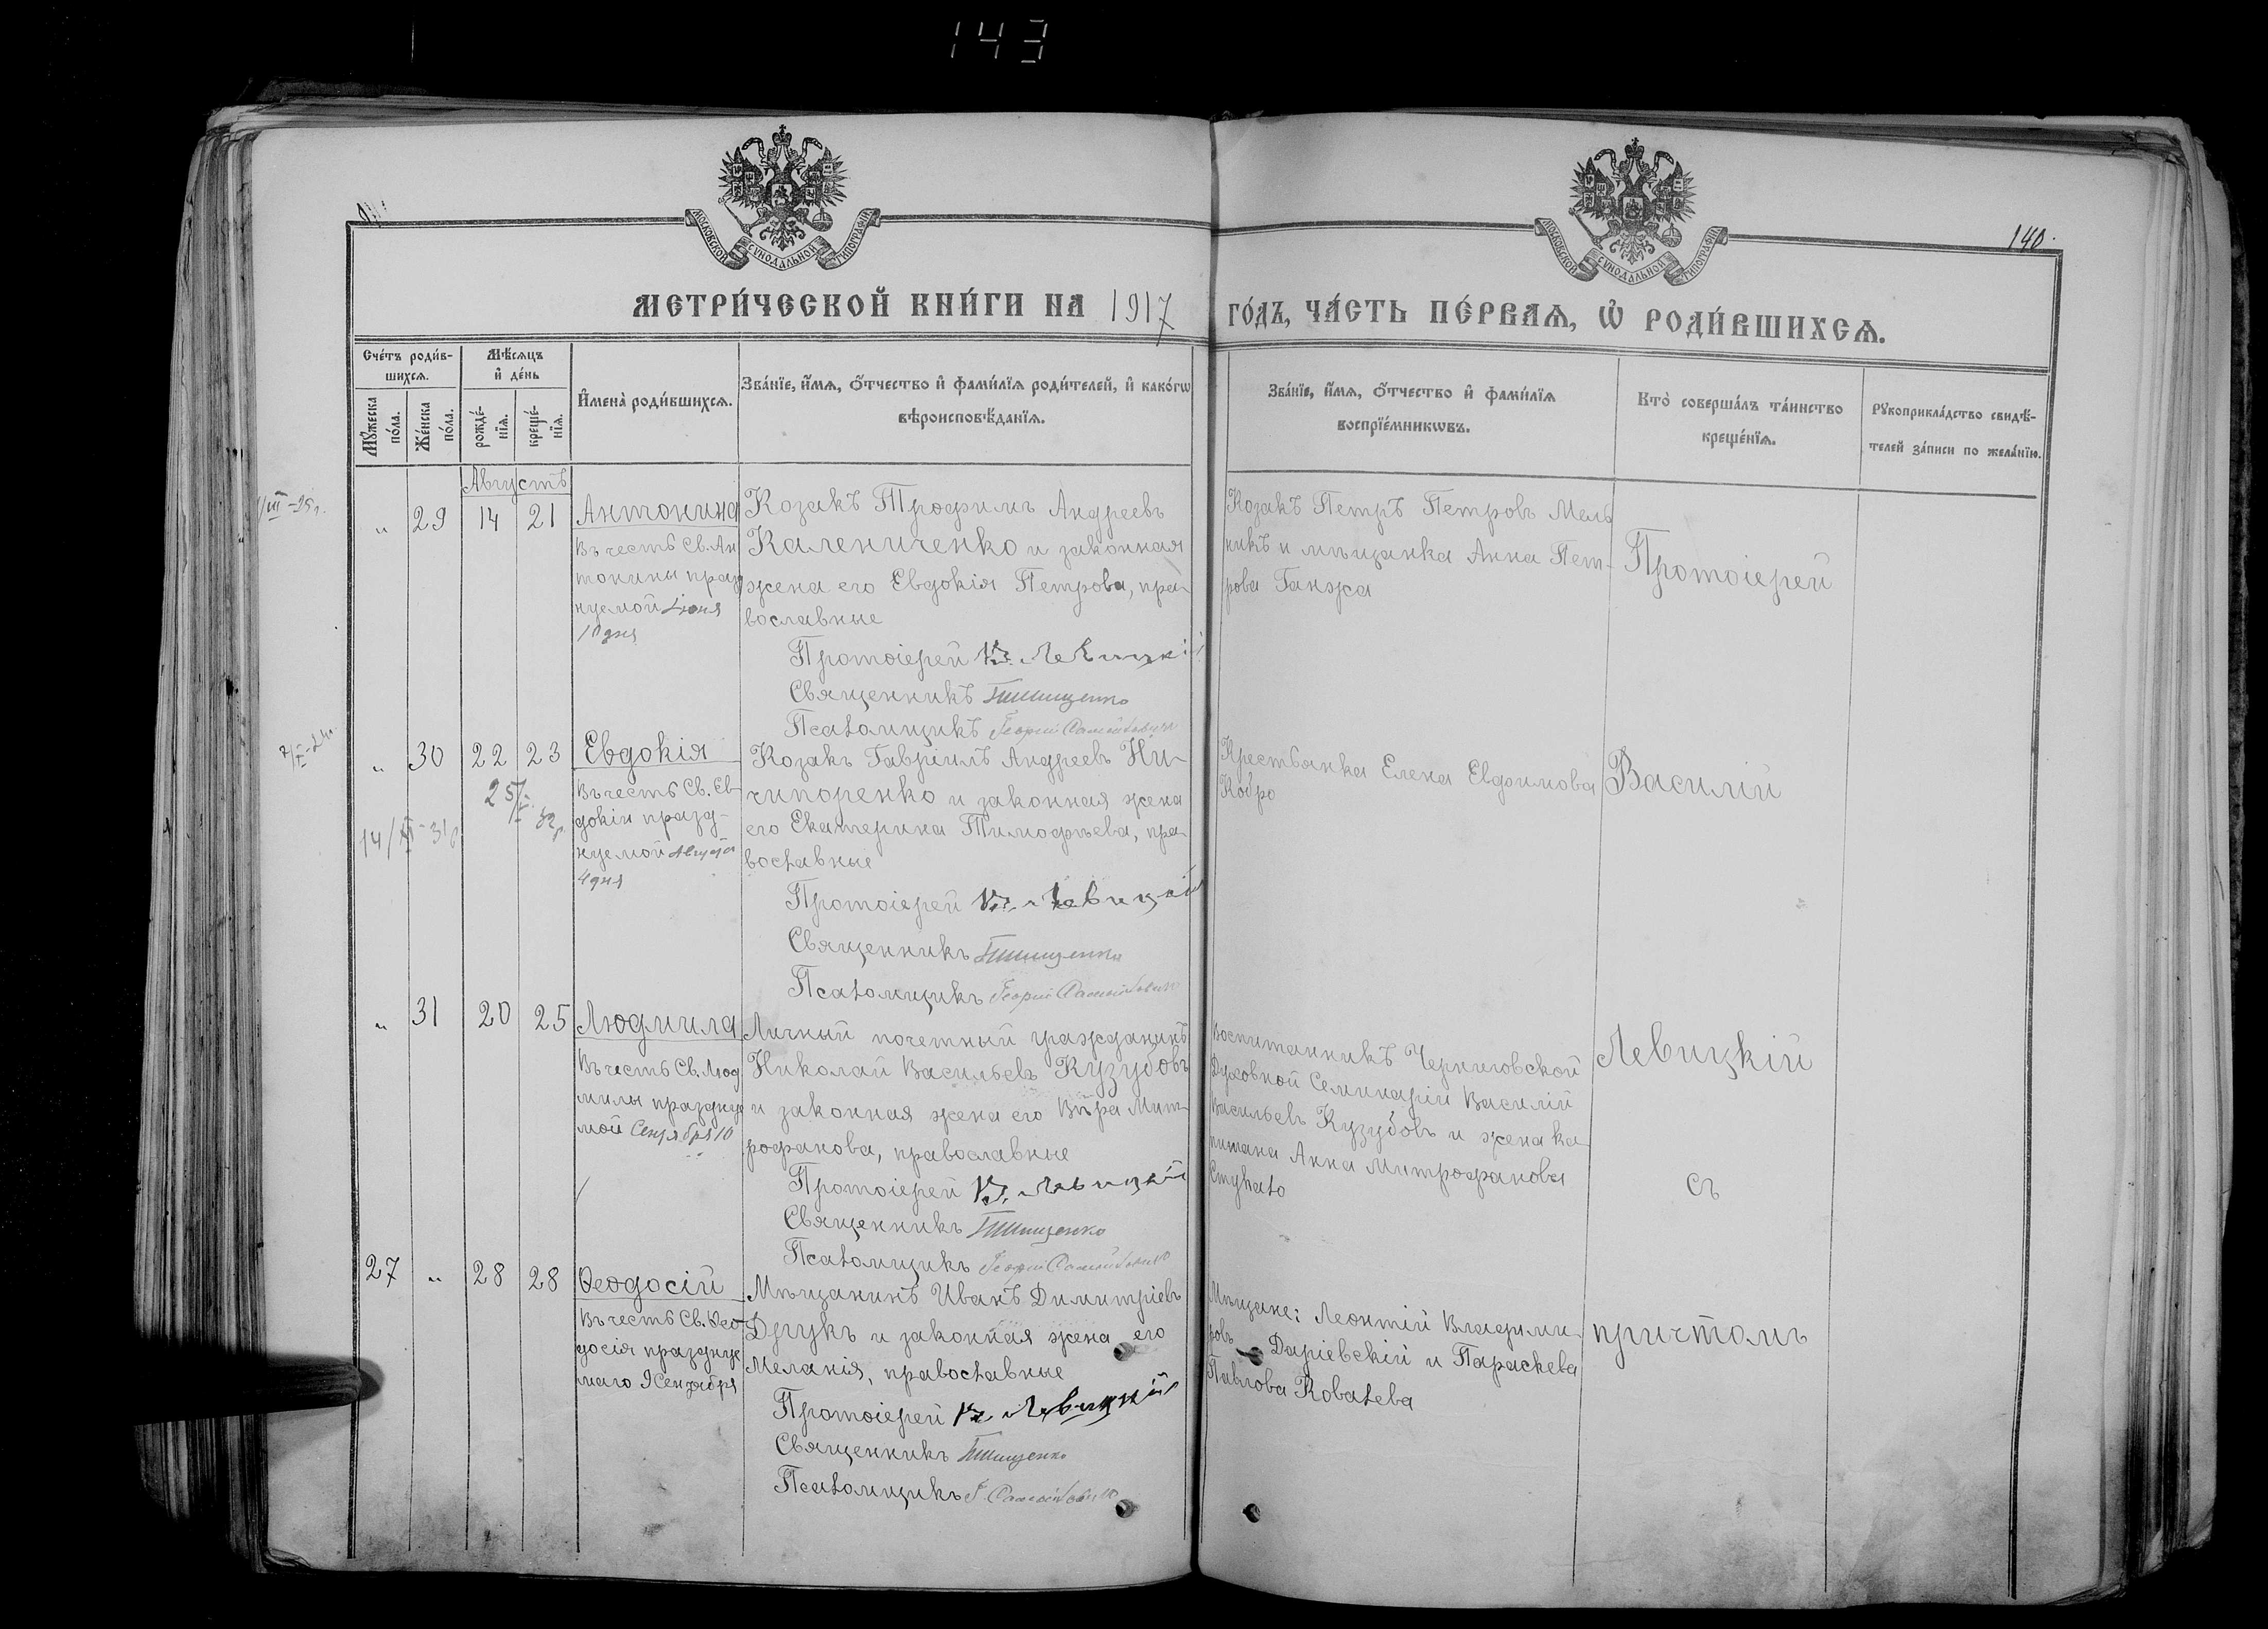 143
МОСКОВСКОЙ СѴНОДАЛЬНОЙ ТИПОГРАФІИ
МОСКОВСКОЙ СѴНОДАЛЬНОЙ ТИПОГРАФІИ
140.
МЕТРИ́ЧЕСКОЙ КНИ́ГИ НА 1917 ГО́ДЪ, ЧА́СТЬ ПЕ́РВАѦ, Ѡ҆ РОДИ́ВШИХСѦ.
Сче́тъ роди́в-
шихсѧ.
Мѣ́сѧцъ
и҆ де́нь
И҆мена̀ роди́вшихсѧ.
Зва́нїе, и҆́мѧ, ѻ҆́тчество и҆ фами́лїѧ роди́телей, и҆ како́гѡ
вѣроисповѣ́данїѧ.
Зва́нїе, и҆́мѧ, ѻ҆́тчество и҆ фами́лїѧ
воспрїе́мникѡвъ.
Кто̀ соверша́лъ та́инство
креще́нїѧ.
Рꙋкоприкла́дство свидѣ́-
телей за́писи по жела́нїю.
Мꙋ́жеска
по́ла.
Же́нска
по́ла.
рожде́-
нїѧ.
креще́-
нїѧ.
Августъ
„ 29 14 21
Антонина
Въ честь Св. Ан
тонины празд
нуемой Іюня
10 дня
Козакъ Трофимъ Андреевъ
Калениченко и законная
жена его Евдокія Петрова, пра-
вославные
Протоіерей В. Левицкій
Священникъ Тищенко
Псаломщикъ Георгій Самойловичъ
Козакъ Петръ Петровъ Мель
никъ и мѣщанка Анна Пет-
рова Ганжа
Протоіерей
„ 30 22 23
Евдокія
Въ честь Св. Ев-
докіи празд-
нуемой Августа
4 дня
Козакъ Гавріилъ Андреевъ Ни-
чипоренко и законная жена
его Екатерина Тимофѣева, пра-
вославные
Протоіерей В. Левицкій
Священникъ Тищенко
Псаломщикъ Георгій Самойловичъ
Крестьянка Елена Евфимова
Кобро
Василій
14/XI-31
„ 31 20 25
Людмила
Въ честь Св. Люд
милы празднуе
мой Сентября 10
Личный почетный гражданинъ
Николай Васильевъ Кузубовъ
и законная жена его Вѣра Мит-
рофанова, православные
Протоіерей В. Левицкій
Священникъ Тищенко
Псаломщикъ Георгій Самойловичъ
Воспитанникъ Черниговской
Духовной Семинаріи Василій
Васильевъ Кузубовъ и жена ка-
питана Анна Митрофанова
Левицкій
съ
27 „ 28 28
Ѳеодосій
Въ честь Св. Ѳео-
досія празднуе
маго 9 Сентября
Мѣщанинъ Иванъ Димитріевъ
Друкъ и законная жена его
Меланія, православные
Протоіерей В. Левицкій
Священникъ Тищенко
Псаломщикъ Г. Самойловичъ
Мѣщане: Леонтій Владими-
ровъ Даріевскій и Параскева
Павлова Ковалева
причтомъ